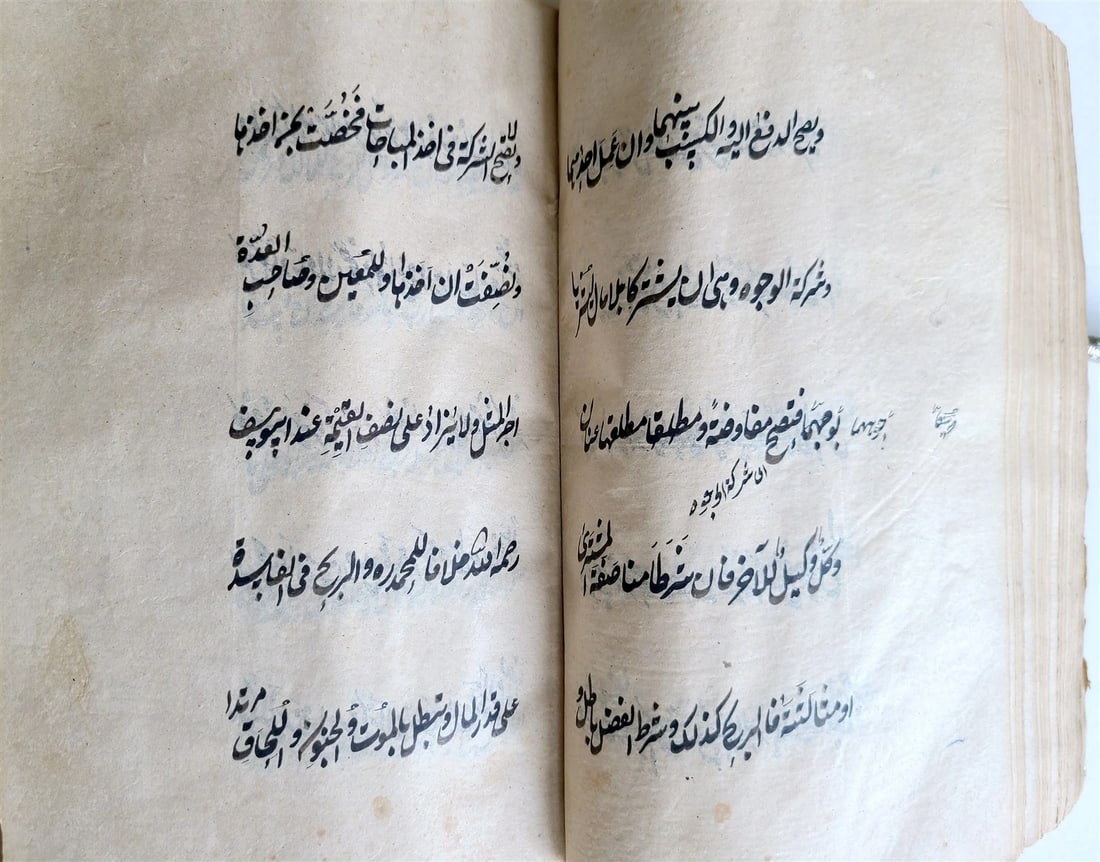 ويصح الدفع اليه والكسب بينهما وان عمل احدهما
وشركة الوجوه وهي ان يشتركا بلا مال ليشتريا
بوجههما فتصح مفاوضة ومطلقا مطلقها عنان
بوجههما
اى شركة الوجوه
وكل وكيل للآخر فان شرطا مناصفة المشترى
او مثالثته فالربح كذلك وشرط الفضل باطل و
ولا يصح الشركة فى اخذ المباحات فخصت بمن اخذها
ونصفت ان اخذاها وللمعين وصاحب العدة
اجر المثل ولا يزاد على نصف القيمة عند ابى يوسف
رحمه الله خلافا لمحمد ره والربح فى الفاسدة
على قدر المال وتبطل بالموت والجنون واللحاق مرتدا